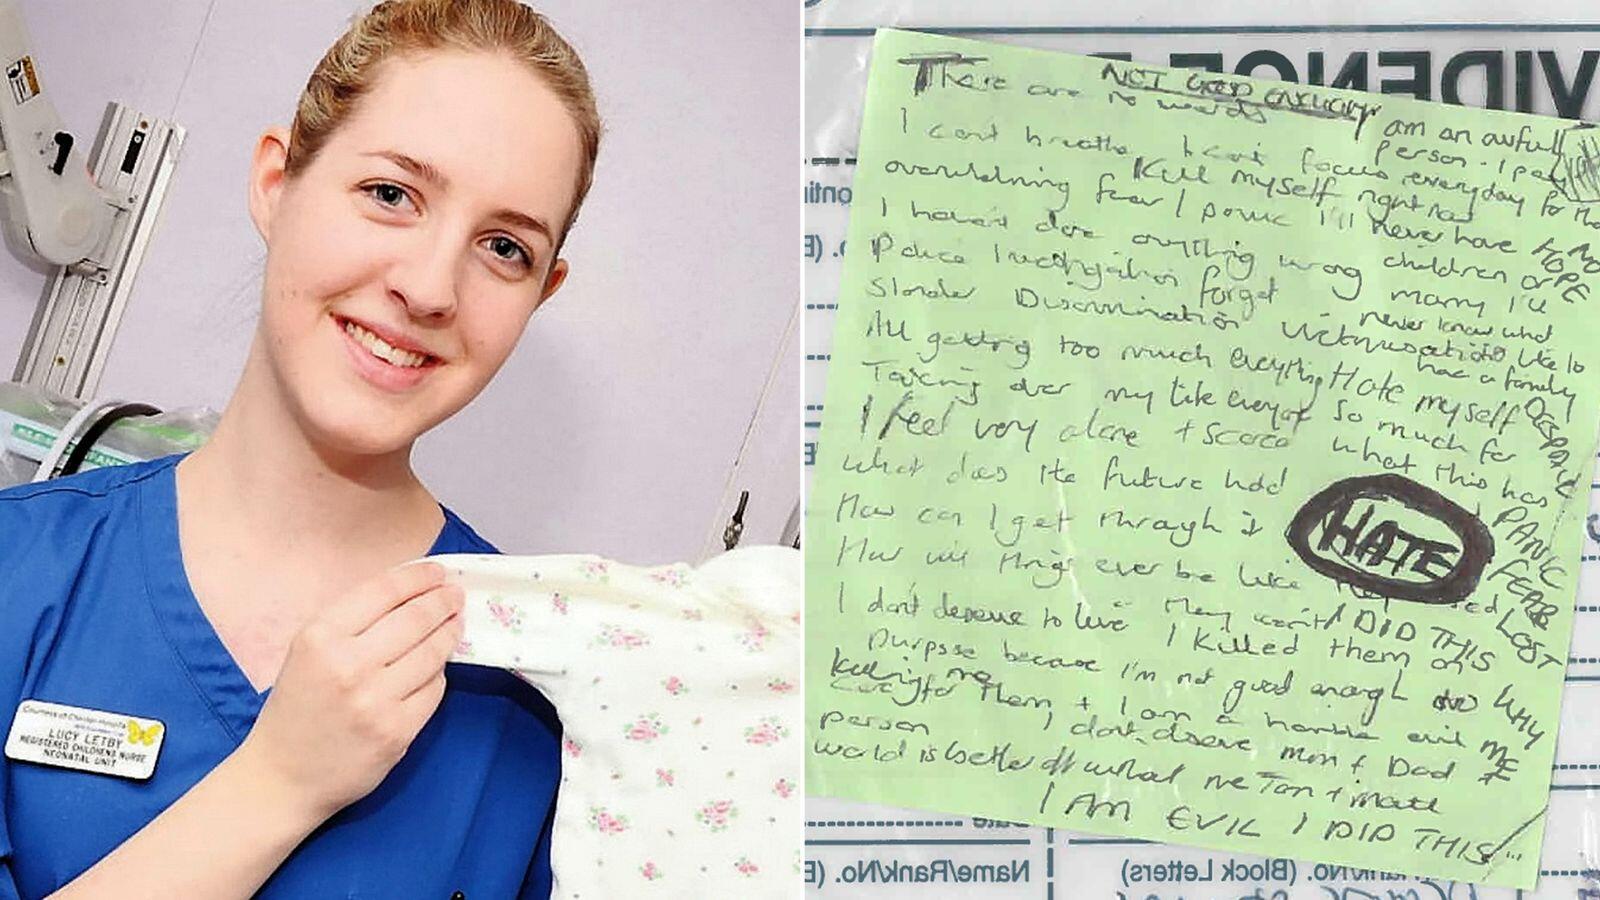 Countess of Chester Hospital
LUCY LETBY
REGISTERED CHILDRENS NURSE
NEONATAL UNIT
VIDENCE
NOT GOOD ENOUGH
There are no words
I am an awful person. I pay everyday for that
I can't breathe I can't focus
Kill myself right now
overwhelming fear / panic
I'll never have children or marry I'll never know what
NO HOPE
I haven't done anything wrong
it's like to have a family
Police Investigation forget
Slander Discrimination
All getting too much everything
Hate myself so much for what this has
DESPAIR
Taking over my life everyday
I feel very alone + scared
What does the future hold
How can I get through it
HATE
PANIC
FEAR
LOST
How will things ever be like they used
I don't deserve to live
I DID THIS
WHY ME
I killed them on
purpose because I'm not good enough to
care for them + I am a horrible evil
killing me
person
I don't deserve mum + Dad
world is better off without me
I AM EVIL I DID THIS
Name/Rank/No.
Rank/No. (Block Letters)
Date